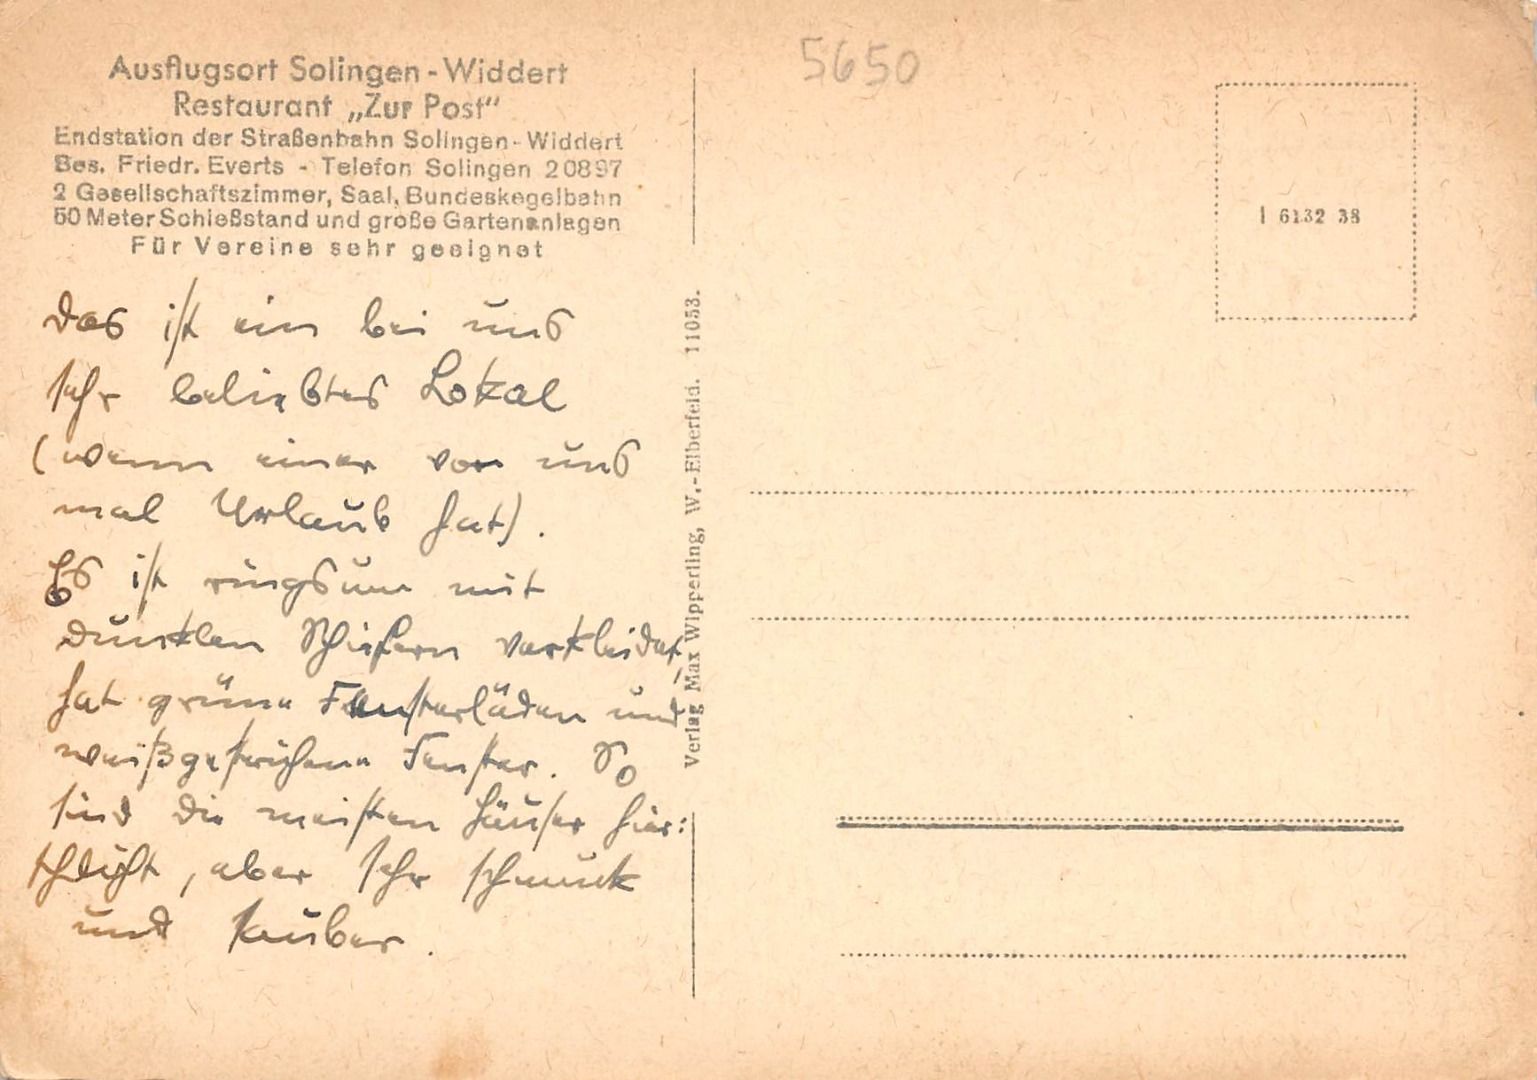 Ausflugsort Solingen-Widdert
Restaurant „Zur Post“
Endstation der Straßenbahn Solingen-Widdert
Bes. Friedr. Everts - Telefon Solingen 20897
2 Gesellschaftszimmer, Saal, Bundeskegelbahn
50 Meter Schießstand und große Gartenanlagen
Für Vereine sehr geeignet
Das ist ein bei uns
sehr beliebtes Lokal
(wenn einer von uns
mal Urlaub hat).
Es ist ringsum mit
dunklen Schiefern verkleidet,
hat grüne Fensterläden und
weißgestrichene Fenster. So
sind die meisten Häuser hier:
schlicht, aber sehr schmuck
und sauber.
Verlag Max Wipperling, W.-Elberfeld. 11053.
5650
I 6132 38